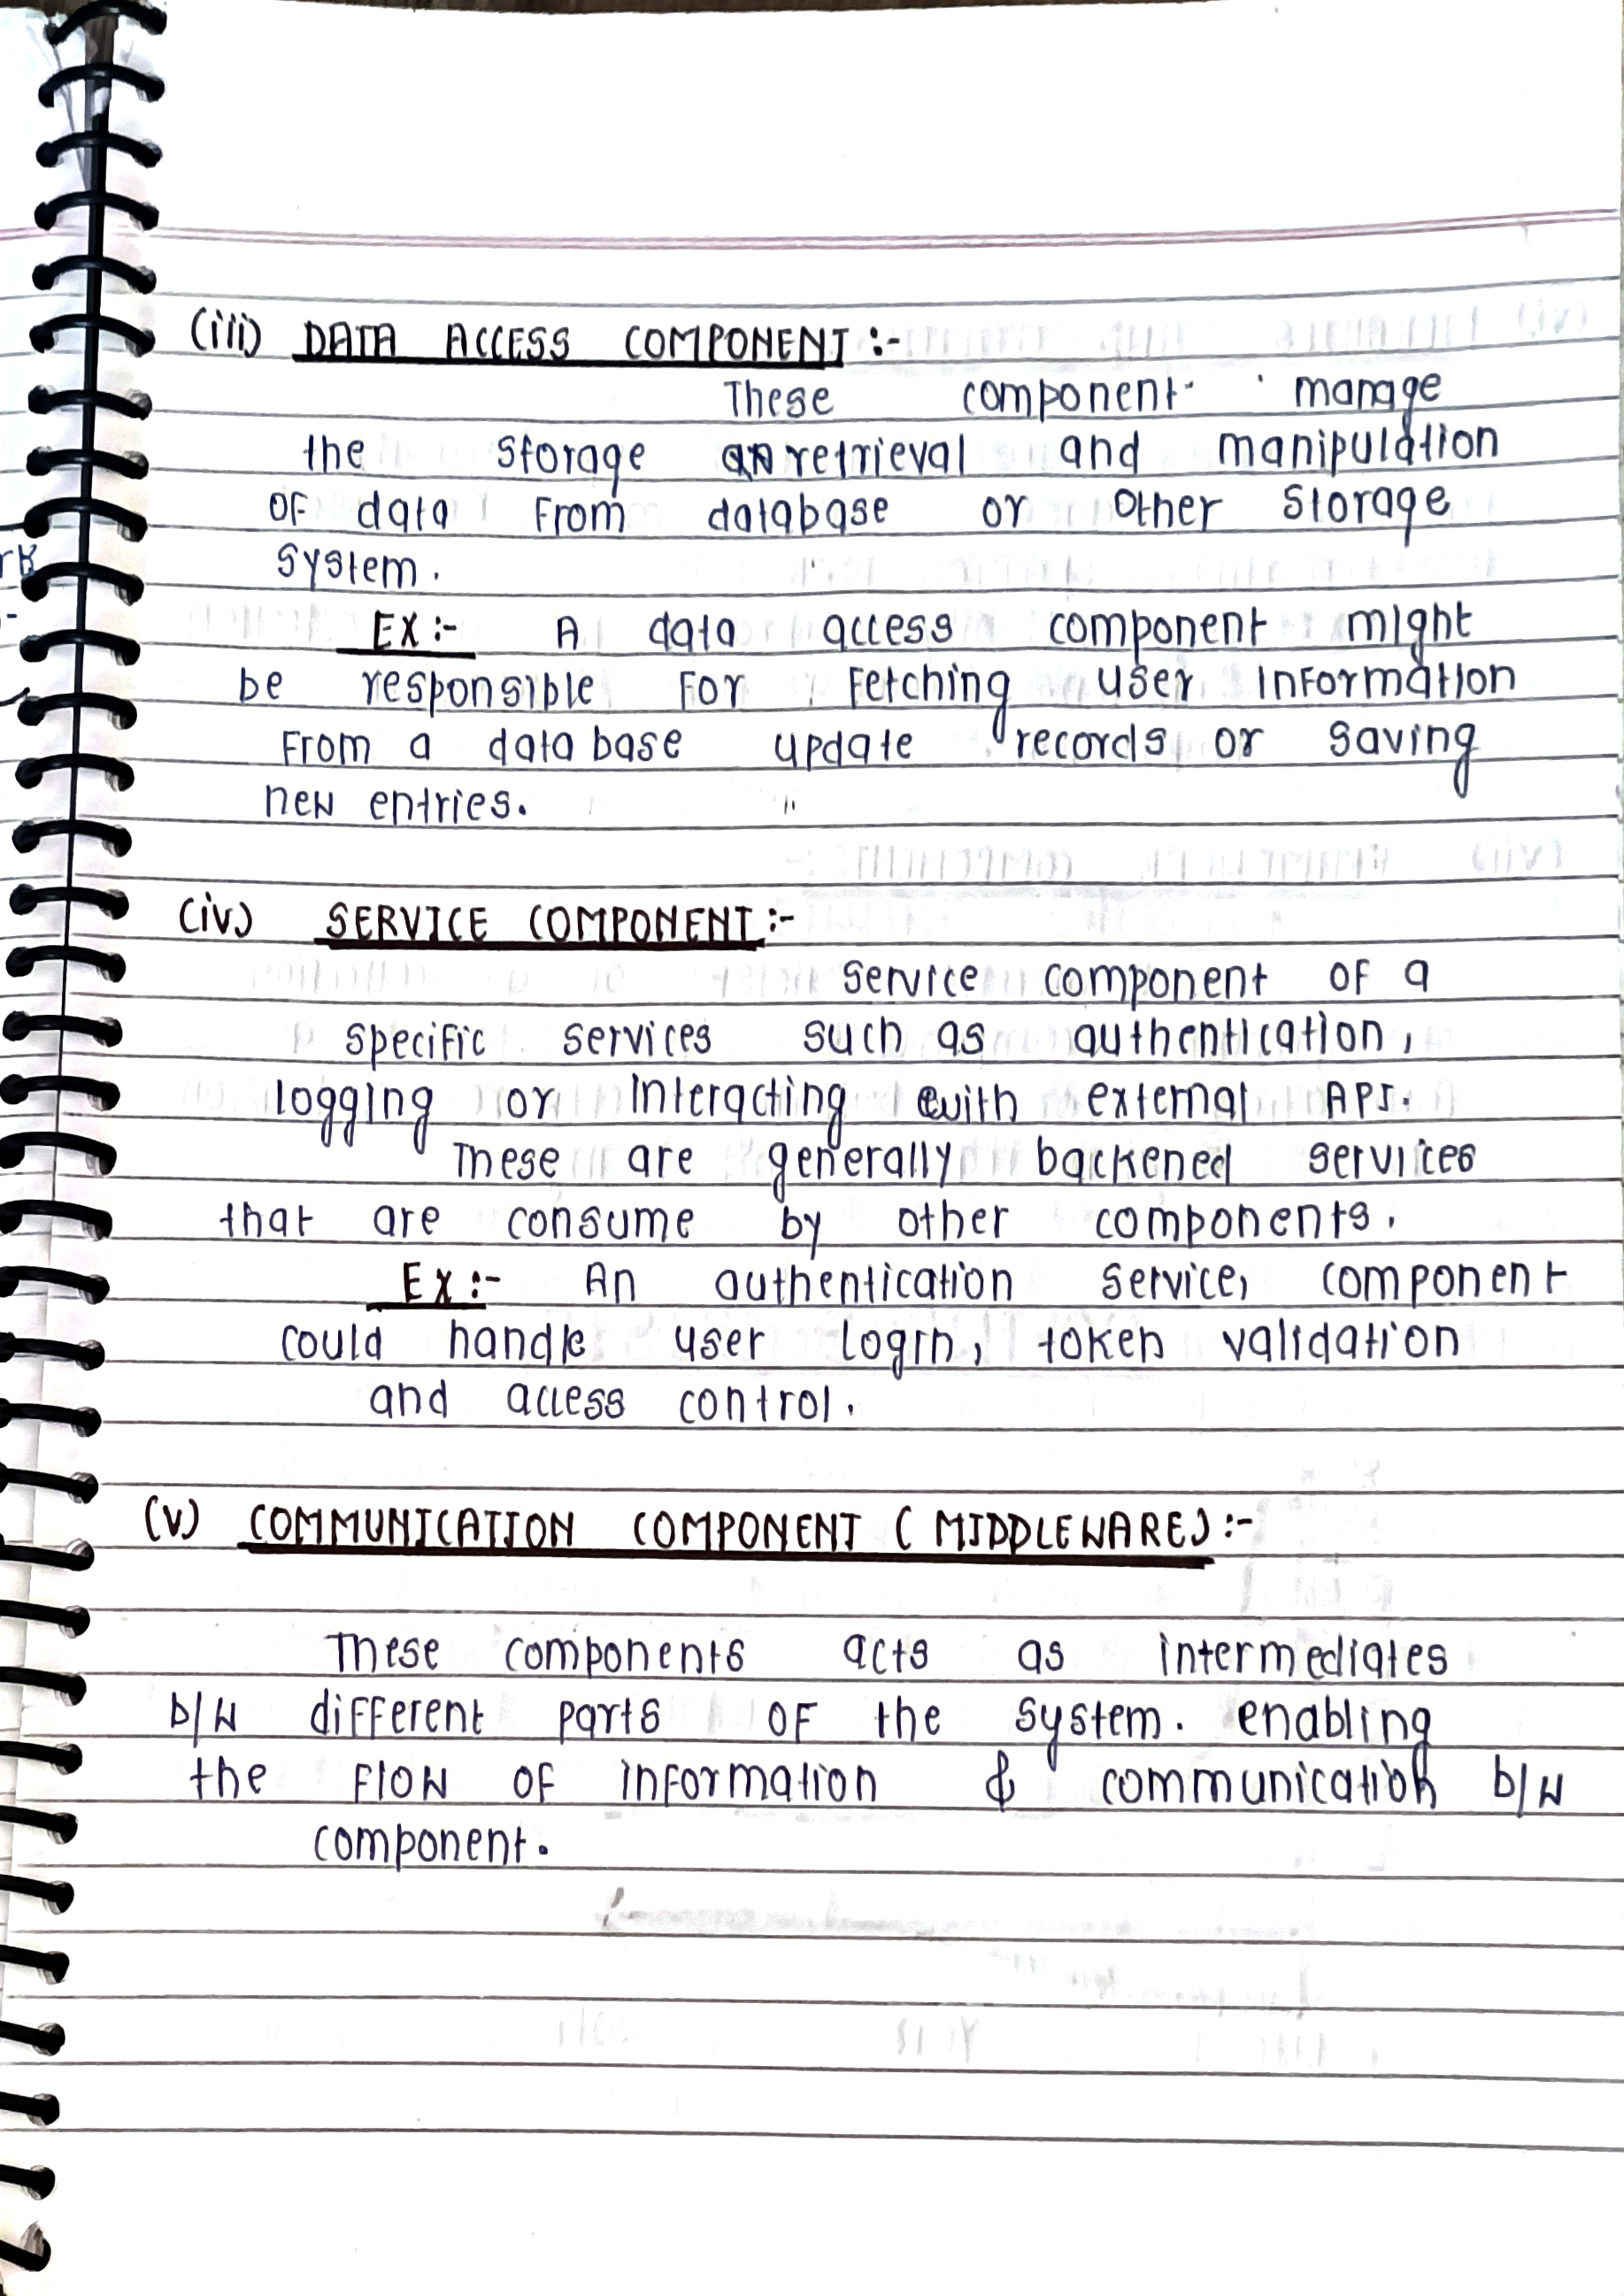 (iii) DATA ACCESS COMPONENT :-
These component manage
the storage retrieval and manipulation
OF data From database or other storage
system.
EX :- A data access component might
be responsible For Fetching user information
From a database update records or saving
new entries.
(iv) SERVICE COMPONENT :-
Service component OF a
specific services such as authentication,
logging or interacting with external API.
These are generally backened services
that are consume by other components.
EX :- An authentication service, component
could handle user login, token validation
and access control.
(v) COMMUNICATION COMPONENT ( MIDDLEWARE) :-
These components acts as intermediates
b/w different parts OF the system. enabling
the Flow OF information & communication b/w
component.